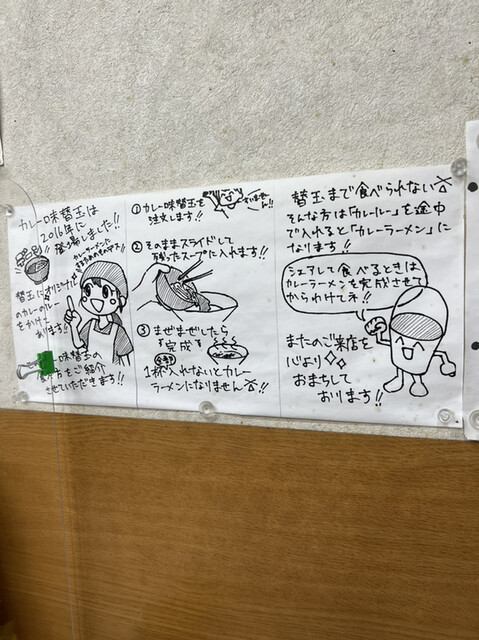 カレー味替玉は
2016年に
登場しました!!
カレーラーメンに
するためのもので
替玉にオリジナル
のカレールー
をかけて
おります!!
味替玉の
方をご紹介
させていただきます!!
①カレー味替玉を
注文します!!
すいませーん!!
②そのままスライドして
残ったスープに入れます!!
③まぜまぜしたら
完成
1杯入れないとカレー
ラーメンになりません!!
替玉まで食べられない
そんな方は「カレールー」を途中
で入れると「カレーラーメン」に
なります!!
シェアして食べるときは
カレーラーメンを完成させて
からわけてネ!!
またのご来店を
心より
おまちして
おります!!